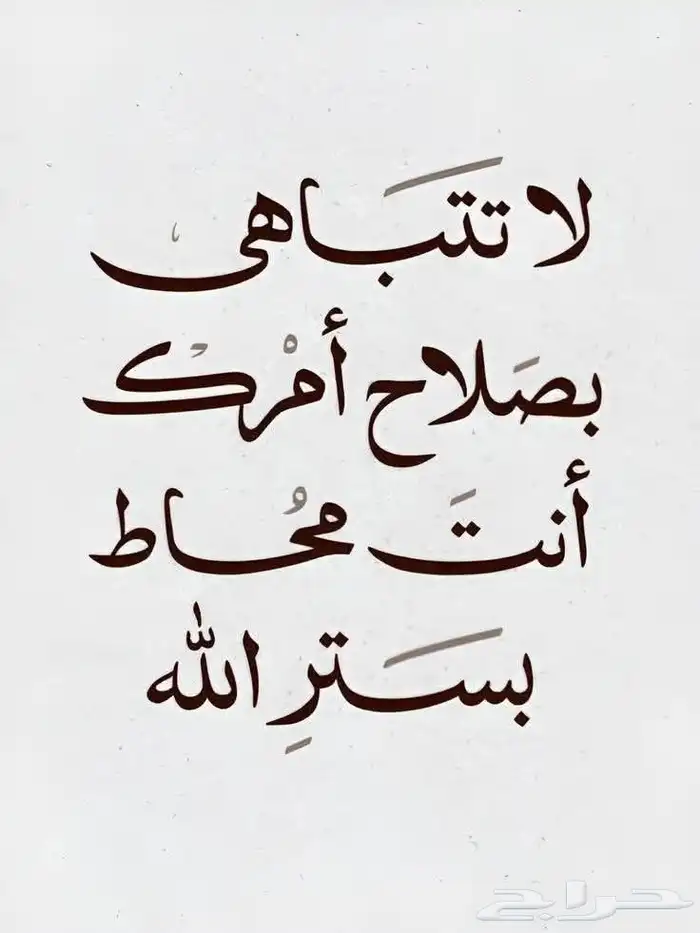 لا تتَباهى
بصَلاح أمْرك
أنتَ مُحاط
بستَرِ الله
حراج